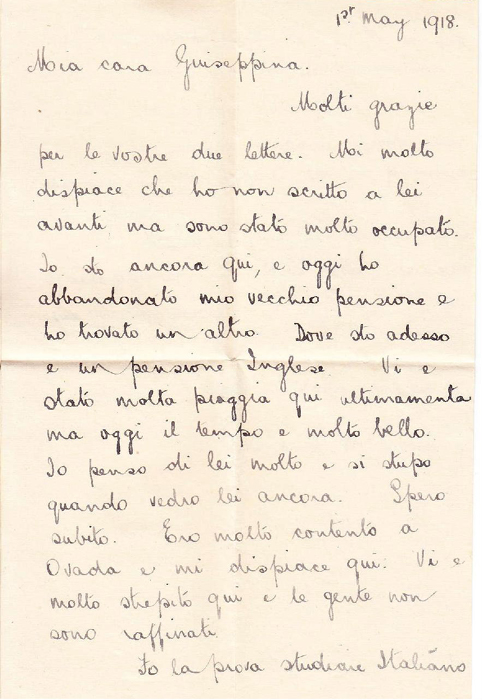 1st May 1918.
Mia cara Giuseppina.
Molti grazie
per le vostre due lettere. Mi molto
dispiace che ho non scritto a lei
avanti, ma sono stato molto occupato.
Io sto ancora qui, e oggi ho
abbandonato mio vecchio pensione e
ho trovato un altro. Dove sto adesso
e un pensione Inglese. Vi e
stato molta pioggia qui ultimamenta
ma oggi il tempo e molto bello.
Io penso di lei molto e si
quando vedro lei ancora. Spero
subito. Ero molto contento a
Ovada e mi dispiace qui. Vi e
molto strepito qui e le gente non
sono raffinati.
Io la prova studiare Italiano